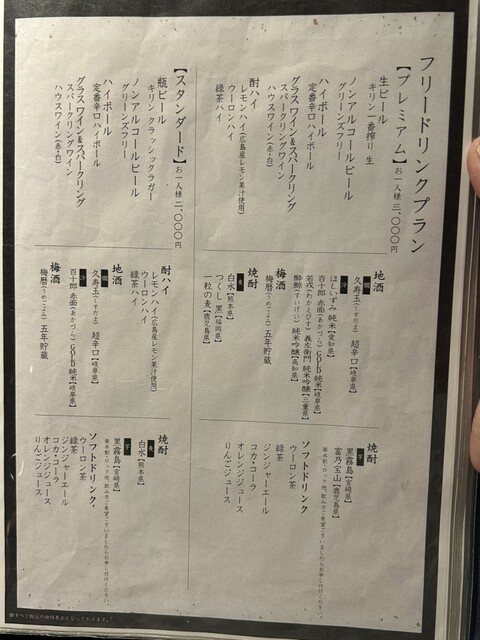 フリードリンクプラン
【プレミアム】お一人様 三、〇〇〇円
生ビール
キリン一番搾り 生
ノンアルコールビール
グリーンズフリー
ハイボール
定番辛口ハイボール
グラスワイン&スパークリング
スパークリングワイン
ハウスワイン(赤・白)
酎ハイ
レモンハイ(広島産レモン果汁使用)
ウーロンハイ
緑茶ハイ
地酒
燗
久寿玉(くすだま) 超辛口【岐阜県】
冷
ほしいずみ 純米【愛知県】
百十郎 赤面(あかづら) GOLD 純米【岐阜県】
若戎(わかえびす) 義左衛門 純米吟醸【三重県】
酔鯨(すいげい) 純米吟醸【高知県】
梅酒
梅暦(うめごよみ) 五年貯蔵
焼酎
麦
白水【熊本県】
つくし 黒【福岡県】
一粒の麦【鹿児島県】
焼酎
芋
黒霧島【宮崎県】
富乃宝山【鹿児島県】
ソフトドリンク
ウーロン茶
緑茶
ジンジャーエール
コカ・コーラ
オレンジジュース
りんごジュース
【スタンダード】お一人様 二、〇〇〇円
瓶ビール
キリン クラッシックラガー
ノンアルコールビール
グリーンズフリー
ハイボール
定番辛口ハイボール
グラスワイン&スパークリング
スパークリングワイン
ハウスワイン(赤・白)
酎ハイ
レモンハイ(広島産レモン果汁使用)
ウーロンハイ
緑茶ハイ
地酒
燗
久寿玉(くすだま) 超辛口【岐阜県】
冷
百十郎 赤面(あかづら) GOLD 純米【岐阜県】
梅酒
梅暦(うめごよみ) 五年貯蔵
焼酎
麦
白水【熊本県】
芋
黒霧島【宮崎県】
ソフトドリンク
ウーロン茶
緑茶
ジンジャーエール
コカ・コーラ
オレンジジュース
りんごジュース